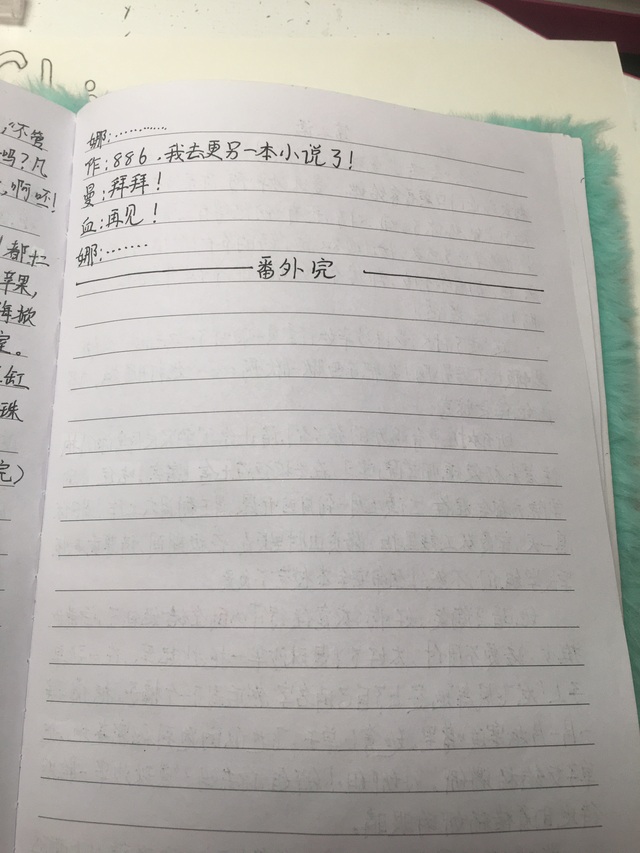 "不管
吗？凡
，啊呸！
都十二
苹果，
缸
珠
完）
娜：…………
作：886，我去更另一本小说了！
曼：拜拜！
血：再见！
娜：……
番外完